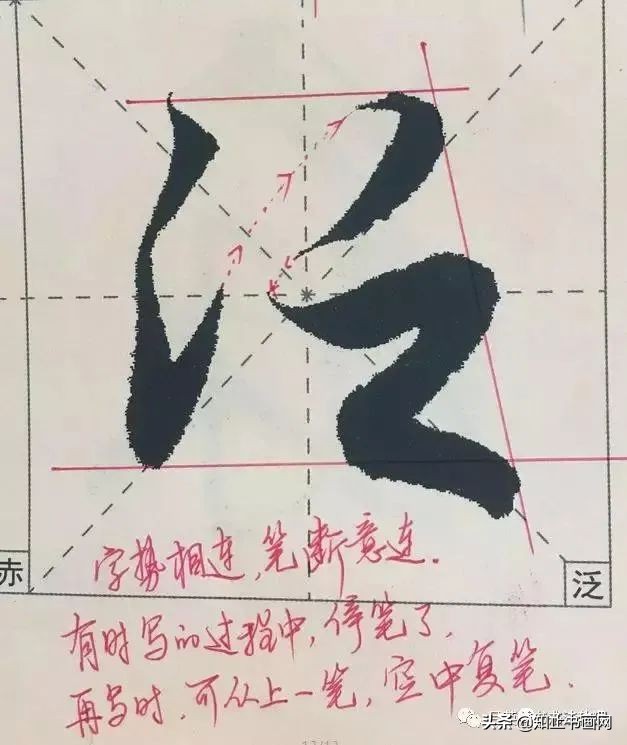 泛
赤
泛
字势相连，笔断意连．
有时写的过程中，停笔了，
再写时，可从上一笔，空中复笔．
头条@知止书画网